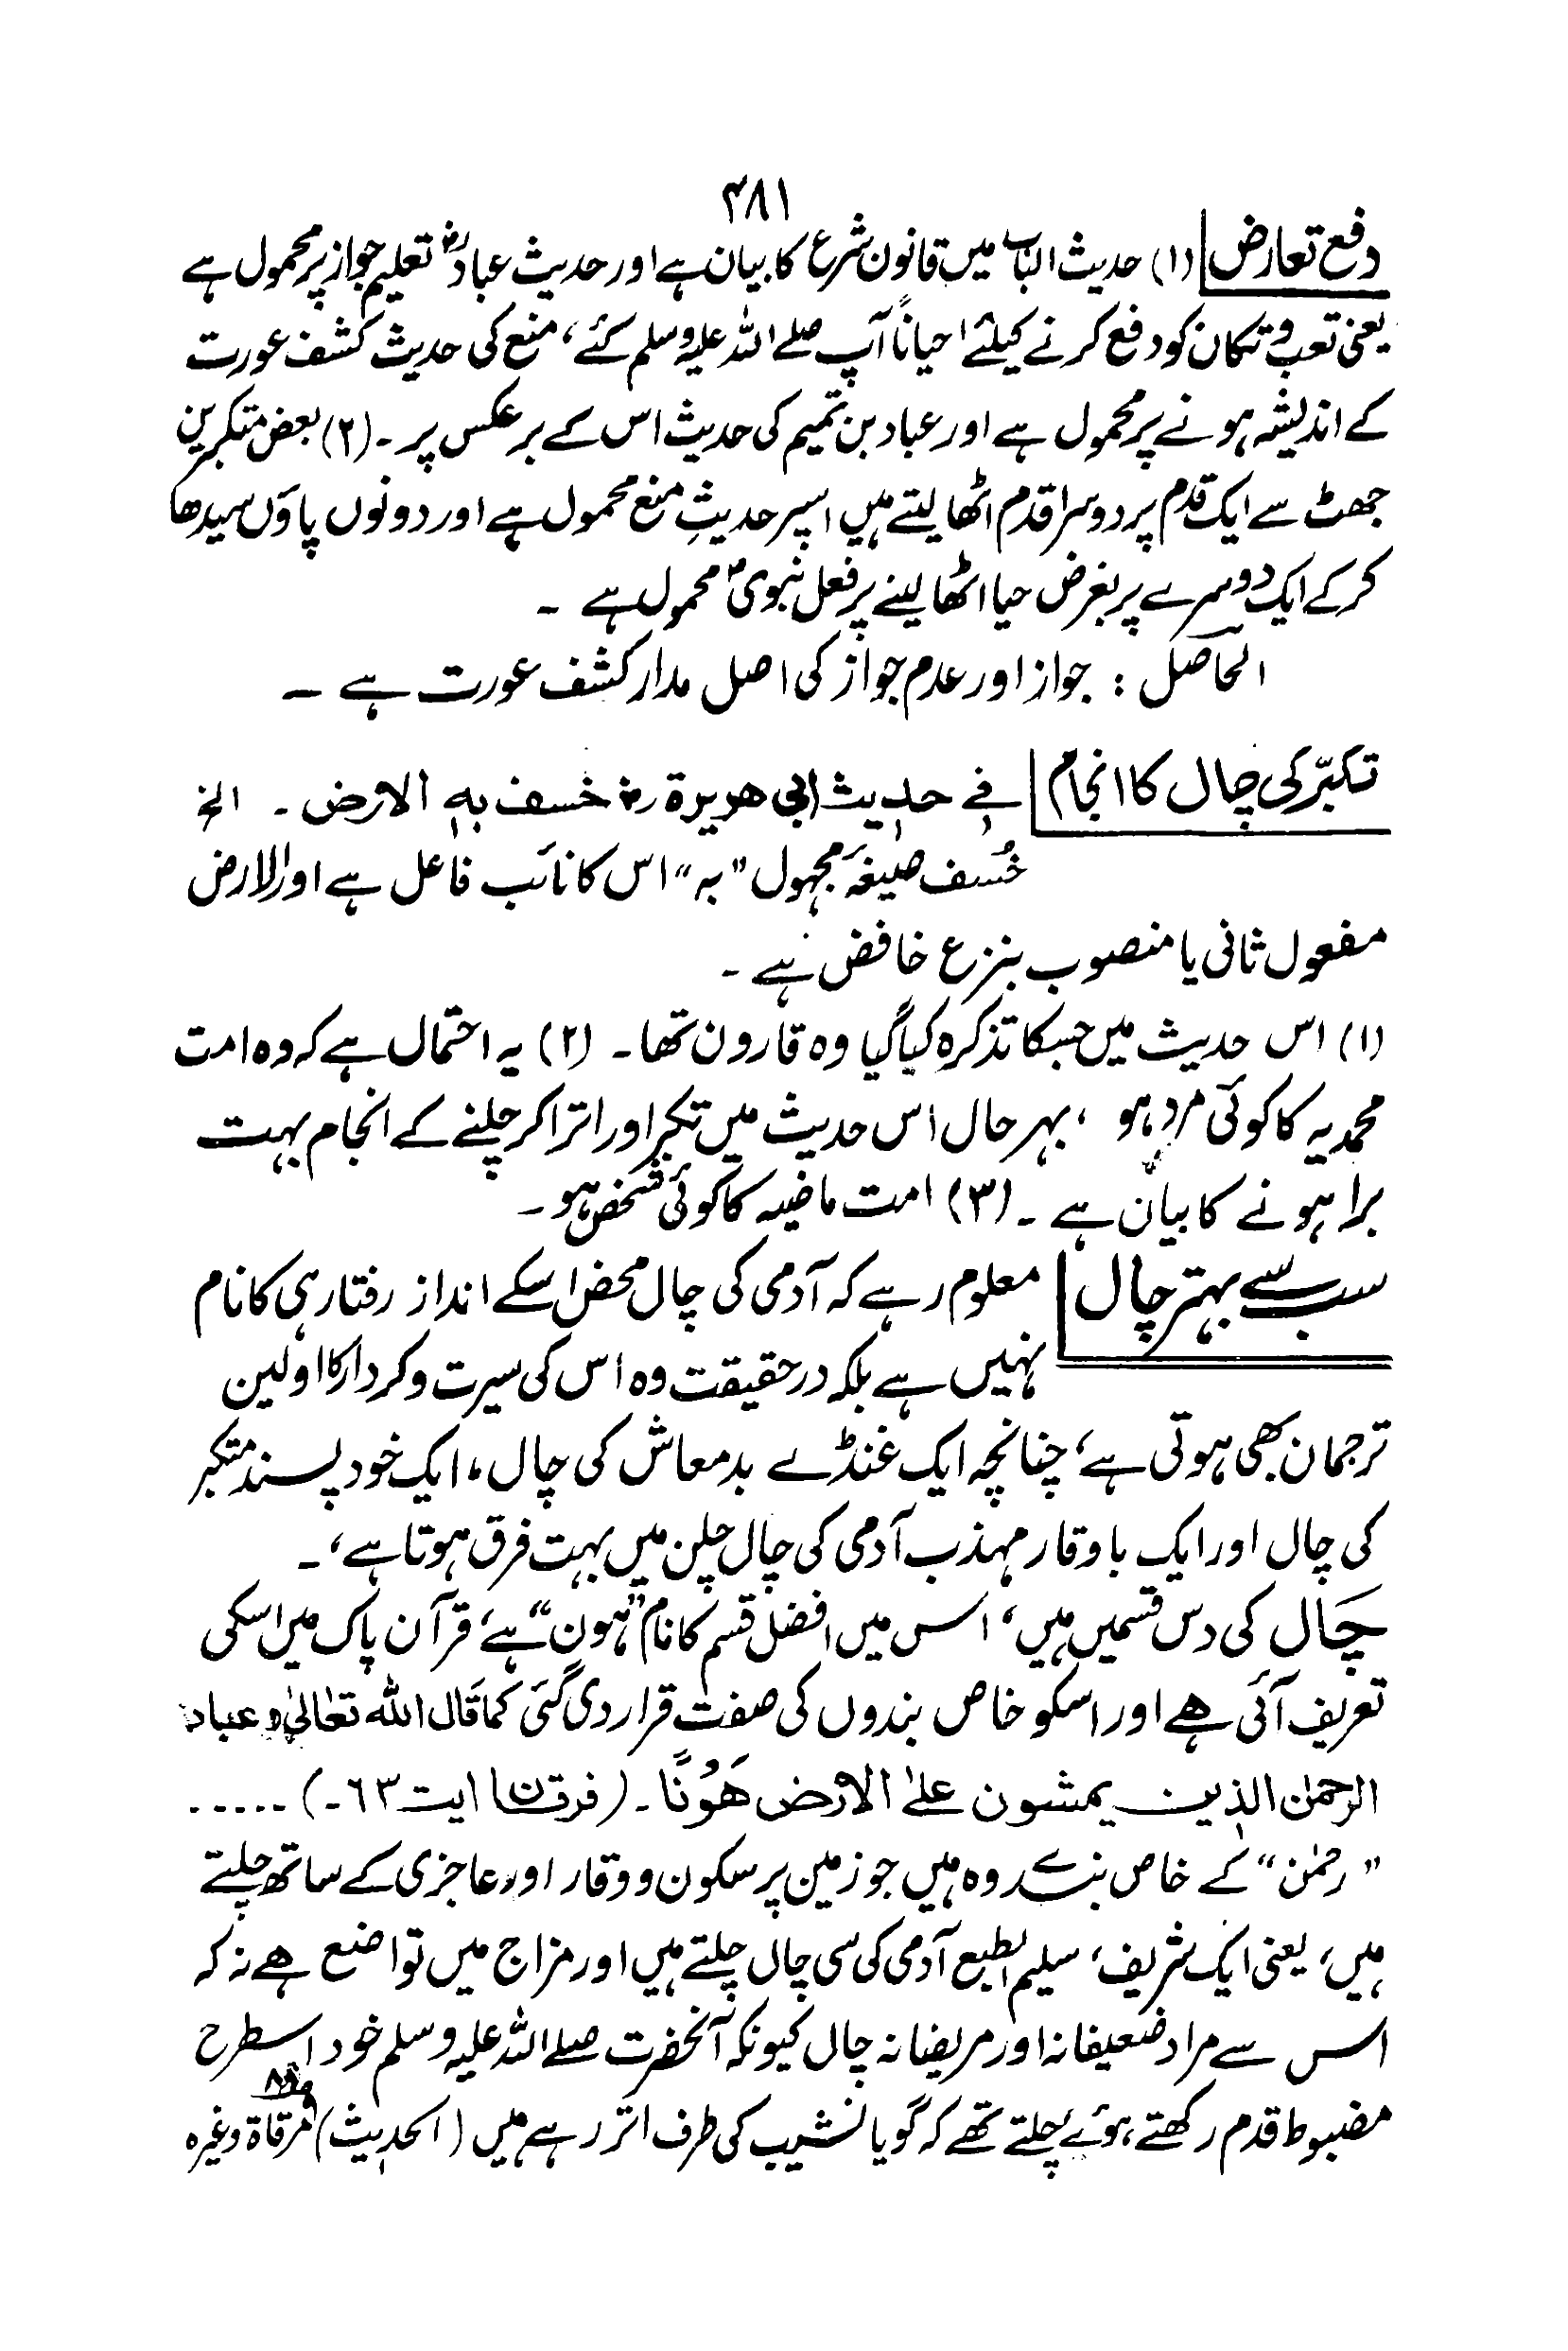 ۴۸۱
دفع تعارض (۱) حدیث الباب میں قانون شرع کا بیان ہے اور حدیث عبادؓ تعلیم جواز پر محمول ہے
یعنی تعب و تکان کو دفع کرنے کیلئے احیاناً آپ صلے اللہ علیہ وسلم کئے، منع کی حدیث کشف عورت
کے اندیشہ ہونے پر محمول ہے اور عباد بن تمیم کی حدیث اس کے برعکس پر ۔ (۲) بعض متکبرین
جھٹ سے ایک قدم پر دوسرا قدم اٹھا لیتے ہیں اسپر حدیثِ منع محمول ہے اور دونوں پاؤں سیدھا
کر کے ایک دوسرے پر بغرض حیا اٹھا لینے پر فعل نبویؐ محمول ہے ۔
الحاصل : جواز اور عدم جواز کی اصل مدار کشف عورت ہے ۔
تکبّر کی چال کا انجام فے حدیث ابی ھریرۃ رض خسف بہ الارض ۔ الخ
خُسف صیغۂ مجہول "بہ" اس کا نائب فاعل ہے اور الارض
مفعول ثانی یا منصوب بنزع خافض ہے ۔
(۱) اس حدیث میں جسکا تذکرہ کیا گیا وہ قارون تھا ۔ (۲) یہ احتمال ہے کہ وہ امت
محمدیہ کا کوئی مرد ہو ، بہر حال اس حدیث میں تکبر اور اترا کر چلنے کے انجام بہت
برا ہونے کا بیان ہے ۔ (۳) امت ماضیہ کا کوئی شخص ہو ۔
سب سے بہتر چال معلوم رہے کہ آدمی کی چال محض اسکے انداز رفتار ہی کا نام
نہیں ہے بلکہ درحقیقت وہ اس کی سیرت و کردار کا اولین
ترجمان بھی ہوتی ہے، چنانچہ ایک غنڈے بدمعاش کی چال، ایک خود پسند متکبر
کی چال اور ایک باوقار مہذب آدمی کی چال چلن میں بہت فرق ہوتا ہے، ۔
چَال کی دس قسمیں ہیں، اس میں افضل قسم کا نام "ہون" ہے، قرآن پاک میں اسکی
تعریف آئی ھے اور اسکو خاص بندوں کی صفت قرار دی گئی کما قال اللہ تعالیٰ وعباد
الرحمٰن الذین یمشون علےٰ الارض ھَوْنًا ۔ (فرقان ایت ۶۳۔) ۔۔۔۔۔
"رحمٰن" کے خاص بندے وہ ہیں جو زمین پر سکون و وقار اور عاجزی کے ساتھ چلتے
ہیں، یعنی ایک شریف، سلیم الطبع آدمی کی سی چال چلتے ہیں اور مزاج میں تواضع ھے نہ کہ
اس سے مراد ضعیفانہ اور مریضانہ چال کیونکہ آنحضرت صلے اللہ علیہ وسلم خود اسطرح
مضبوط قدم رکھتے ہوئے چلتے تھے کہ گویا نشیب کی طرف اتر رہے ہیں (الحدیث) مرقاۃ وغیرہ